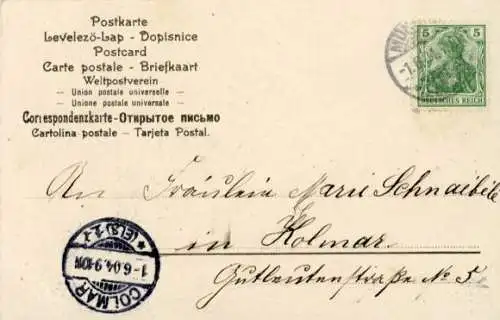 Postkarte
Levelezö-Lap - Dopisnice
Postcard
Carte postale - Briefkaart
Weltpostverein
-- Union postale universelle --
-- Unione postale universale --
Correspondenzkarte-Открытое письмо
Cartolina postale - Tarjeta Postal.
5 5
DEUTSCHES REICH
An Fräulein Marie Schnaibele
in Kolmar
Gutleutenstraße No 5
COLMAR
1-6.04.9-10N
* (ELS) 1. *